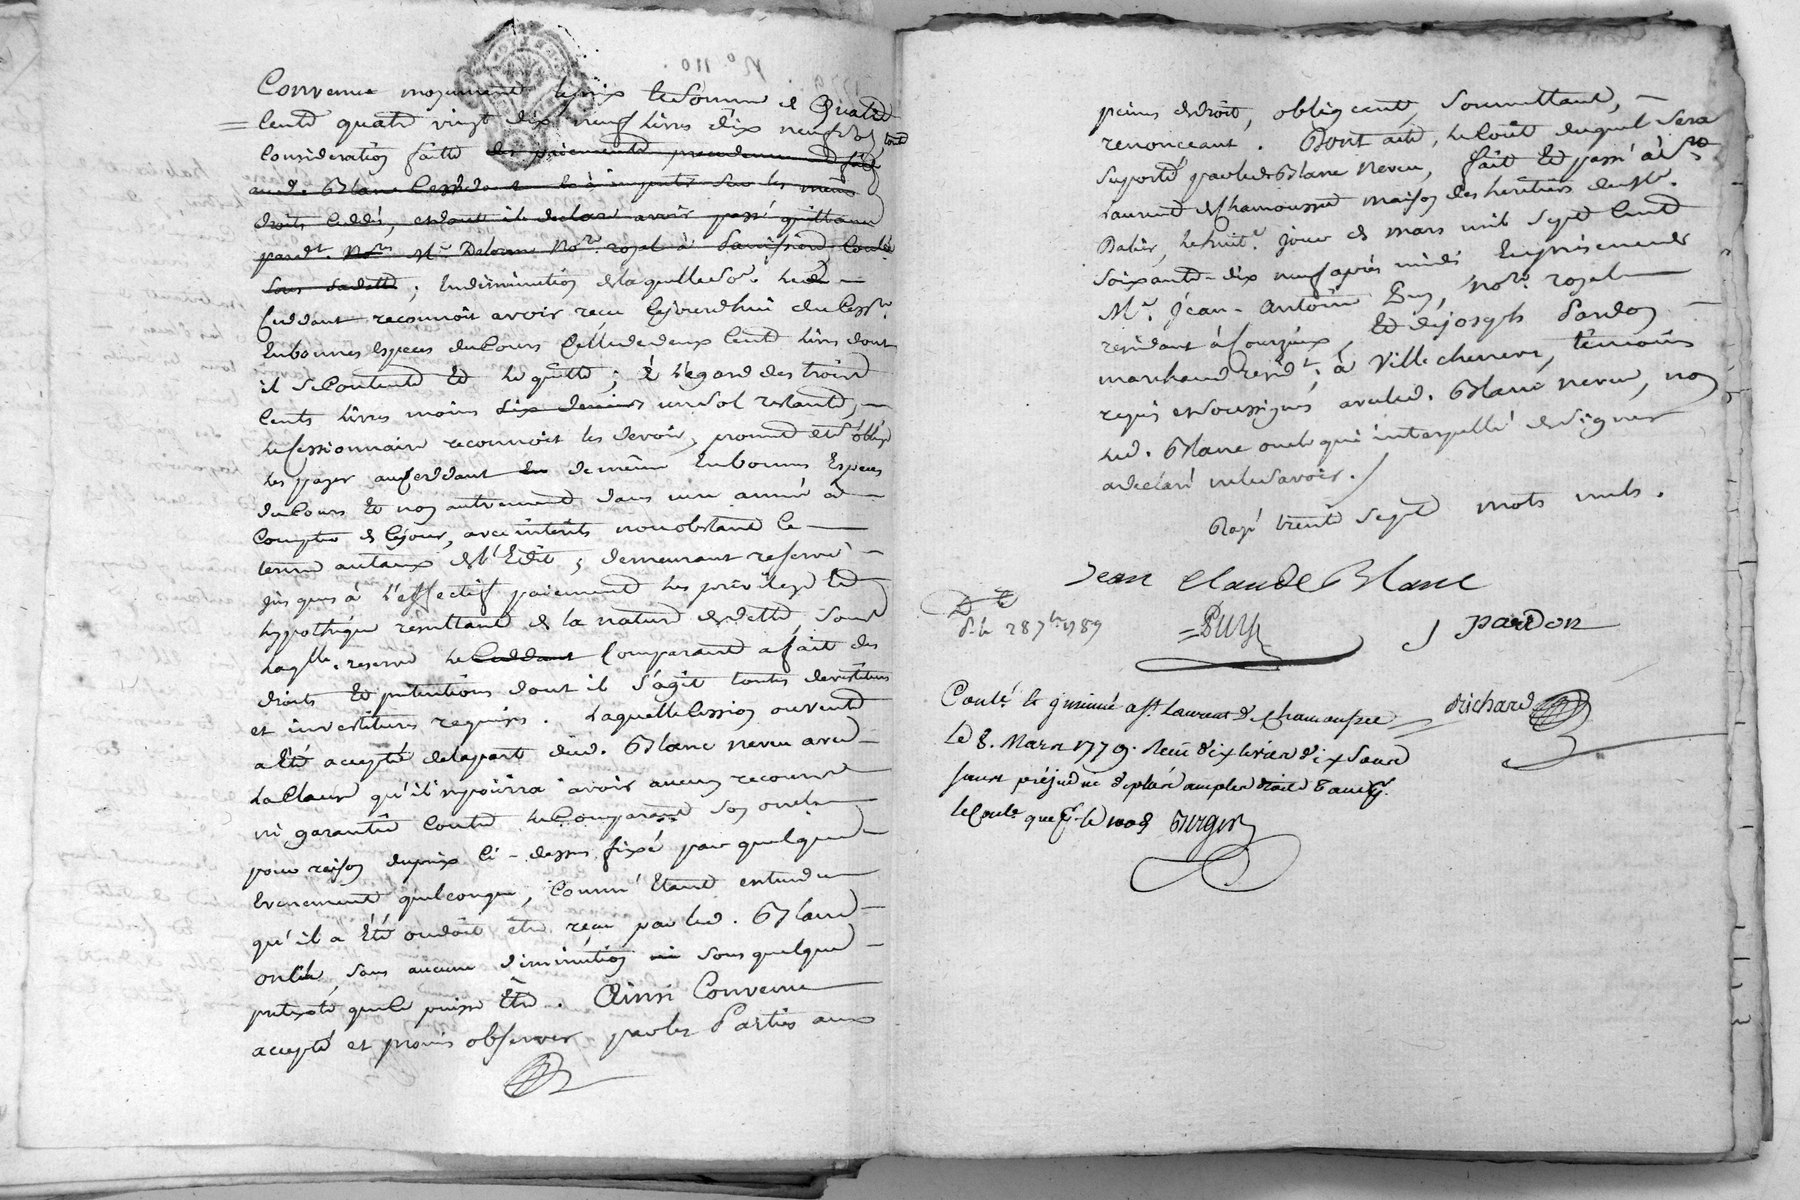 Convenue moyennant le prix et somme de Quatre
Cents quatre vingt dix neuf livres dix neuf sols toute
Consideration faitte des paiements
aud. Blanc Cessionnaire sur les mêmes
droits cedés, et dont il declare avoir passé quittance
pardt. Me. Delorme Nore. royal à
sous sadatte ; En diminution de laquelle so.e led.
Ceddant reconnoit avoir reçu cejourdhui du Cessre.
En bonnes Especes du Cours Celle de deux Cents livres dont
il se Contente Et le quitte ; à l'égard des trois
Cents livres moins six deniers un sol restante,
le Cessionnaire reconnoit les devoir, promet et s'oblige
les payer au Ceddant de même En bonnes Especes
du Cours Et non autrement dans une année à
Compter de ce jour, avec interêts nonobstant le
terme au taux de l'Edit ; demeurant reservé
jusques à l'effectif paiement les privilege Et
hypothéque résultant de la nature de dette, sous
laqlle. reserve le Ceddant Comparant a fait des
droits Et pretentions dont il s'agit toutes devestitures
et investitures requises. Laquelle Cession ouvente
a Eté accepté de la part dud. Blanc neveu avec
la Clause qu'il ne pourra avoir aucun recourir
ni garantie Contre le Comparant son oncle
pour raison du prix ci-dessus fixé par quelque
Evenement quelconque, Comm' Etant entendu
qu'il a Eté ou doit etre reçu par led. Blanc
oncle, sans aucune diminution ni sous quelque
pretexte que ce puisse Etre. Ainsi Convenu
accepté et promis observer par les Parties aux
peines de droit, obligeant, soumettant,
renonceant. Dont acte, le Coût duquel sera
suporté par led. Blanc Neveu, fait Et passé à St.
Laurent de Chamousset maison des heritiers du Sr.
le huite. jour de mars mil sept Cents
soixante-dix neuf après midi En présence de
Me. Jéan-Antoine Puy, Nore. royal
résidant à fourjeux, Et de joseph Pardon
marchand residt. à Villecheneve, témoins
requis et soussignés avec led. Blanc neveu, non
led. Blanc oncle qui interpellé de signer
a declaré ne le savoir. /
Rayé trente sept mots nuls.
Jean Claude Blanc
28 7bre 1789
Puy
J pardon
Conté. le grinine a St. Laurent de Chamousset
drichard
le 8. Mars 1779. Receu dix livres dix sous
sans préjudice de plus ampler droit